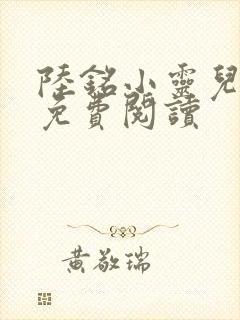 陸銘小靈兒
免費閱讀
黃敬瑞